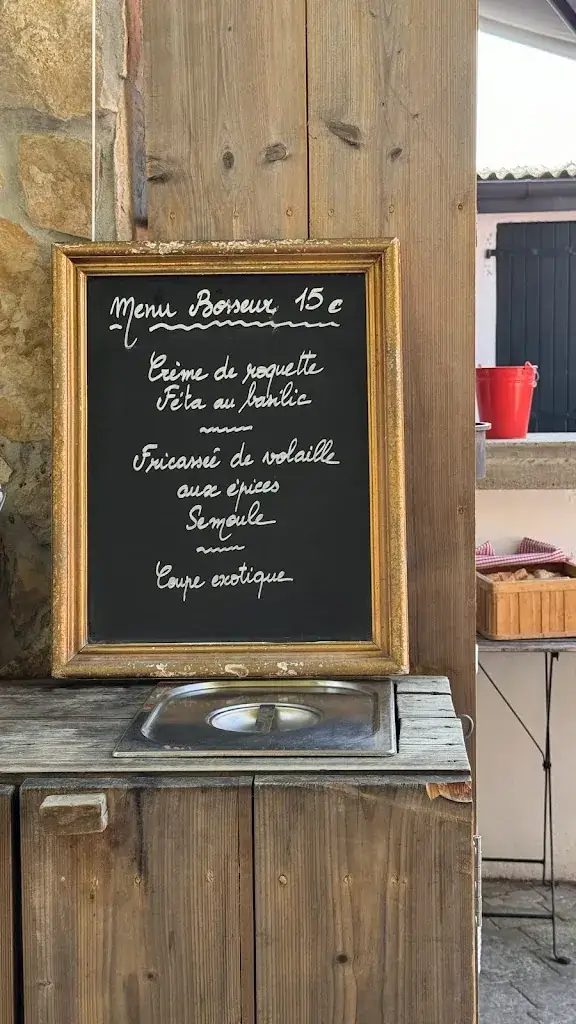 Menu Bosseur 15 €
Crème de roquette
Féta au basilic
Fricassée de volaille
aux épices
Semoule
Coupe exotique